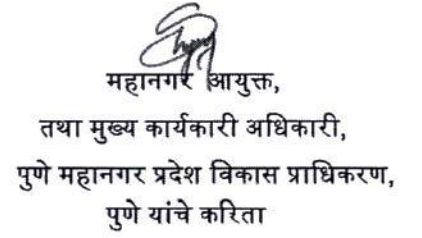 महानगर आयुक्त,
तथा मुख्य कार्यकारी अधिकारी,
पुणे महानगर प्रदेश विकास प्राधिकरण,
पुणे यांचे करिता